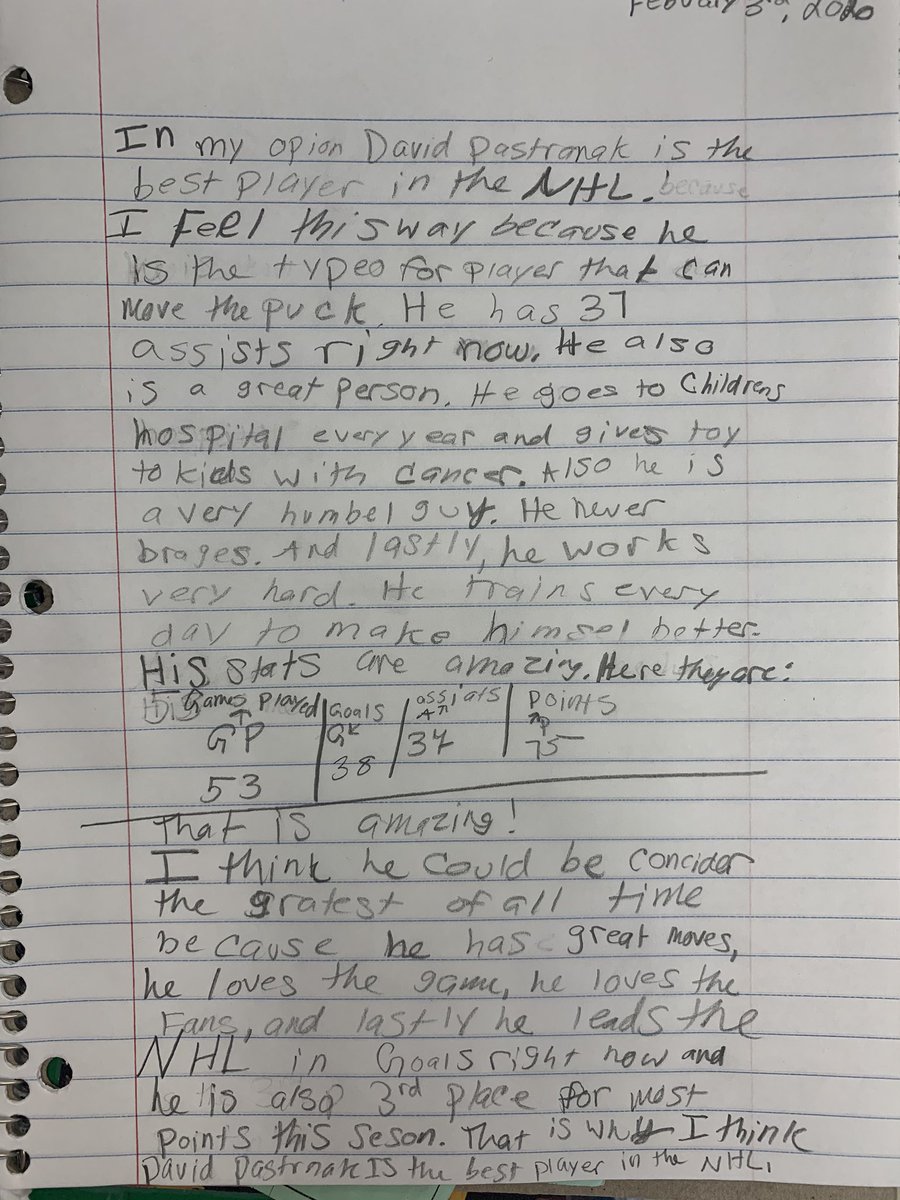 Febuary 3rd, 2020
In my opion David Pastronak is the
best player in the NHL. because
I Feel this way because he
is the typeo for player that can
move the puck. He has 37
assists right now. He also
is a great person. He goes to Childrens
hospital every year and gives toy
to kids with cancer. Also he is
a very humbel guy. He never
brages. And lastly, he works
very hard. He trains every
day to make himsel better.
His stats are amazing. Here they are:
Games Played Goals assists Points
GP G A P
53 38 37 75
That is amazing!
I think he could be concider
the gratest of all time
because he has great moves,
he loves the game, he loves the
Fans, and lastly he leads the
NHL in Goals right now and
he is also 3rd place for most
points this seson. That is why I think
David Pastrnak IS the best player in the NHL.